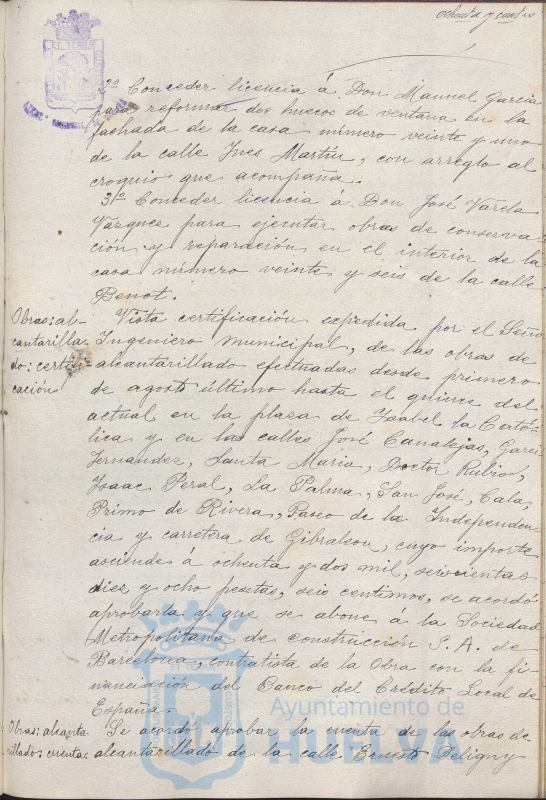 ochenta y cuatro
2º Conceder licencia á Don Manuel Garcia
para reformar dos huecos de ventana en la
fachada de la casa número veinte y uno
de la calle Ines Martín, con arreglo al
croquis que acompaña.
3º Conceder licencia á Don José Varela
Vazquez para ejecutar obras de conserva-
ción y reparación en el interior de la
casa número veinte y seis de la calle
Benot.
Obras: al-
cantarilla
do: certifi-
cación
Vista certificación expedida por el Seño
Ingeniero municipal, de las obras de
alcantarillado efectuadas desde primero
de agosto último hasta el quince del
actual en la plaza de Isabel la Cató-
lica y en las calles José Canalejas, Garci
Fernandez, Santa Maria, Doctor Rubio,
Isaac Peral, La Palma, San José, Cala,
Primo de Rivera, Paseo de la Independen
cia y carretera de Gibraleon, cuyo importe
asciende á ochenta y dos mil, seiscientas
diez y ocho pesetas, seis centimos, se acordó
aprobarla y que se abone á la Sociedad
Metropolitana de construcción S. A. de
Barcelona, contratista de la obra con la fi-
nanciación del Banco del Crédito Local de
España.
Obras: alcanta
rillado: cuenta.
Se acordó aprobar la cuenta de las obras de
alcantarillado de la calle Ernesto Deligny
Ayuntamiento de
HUELVA